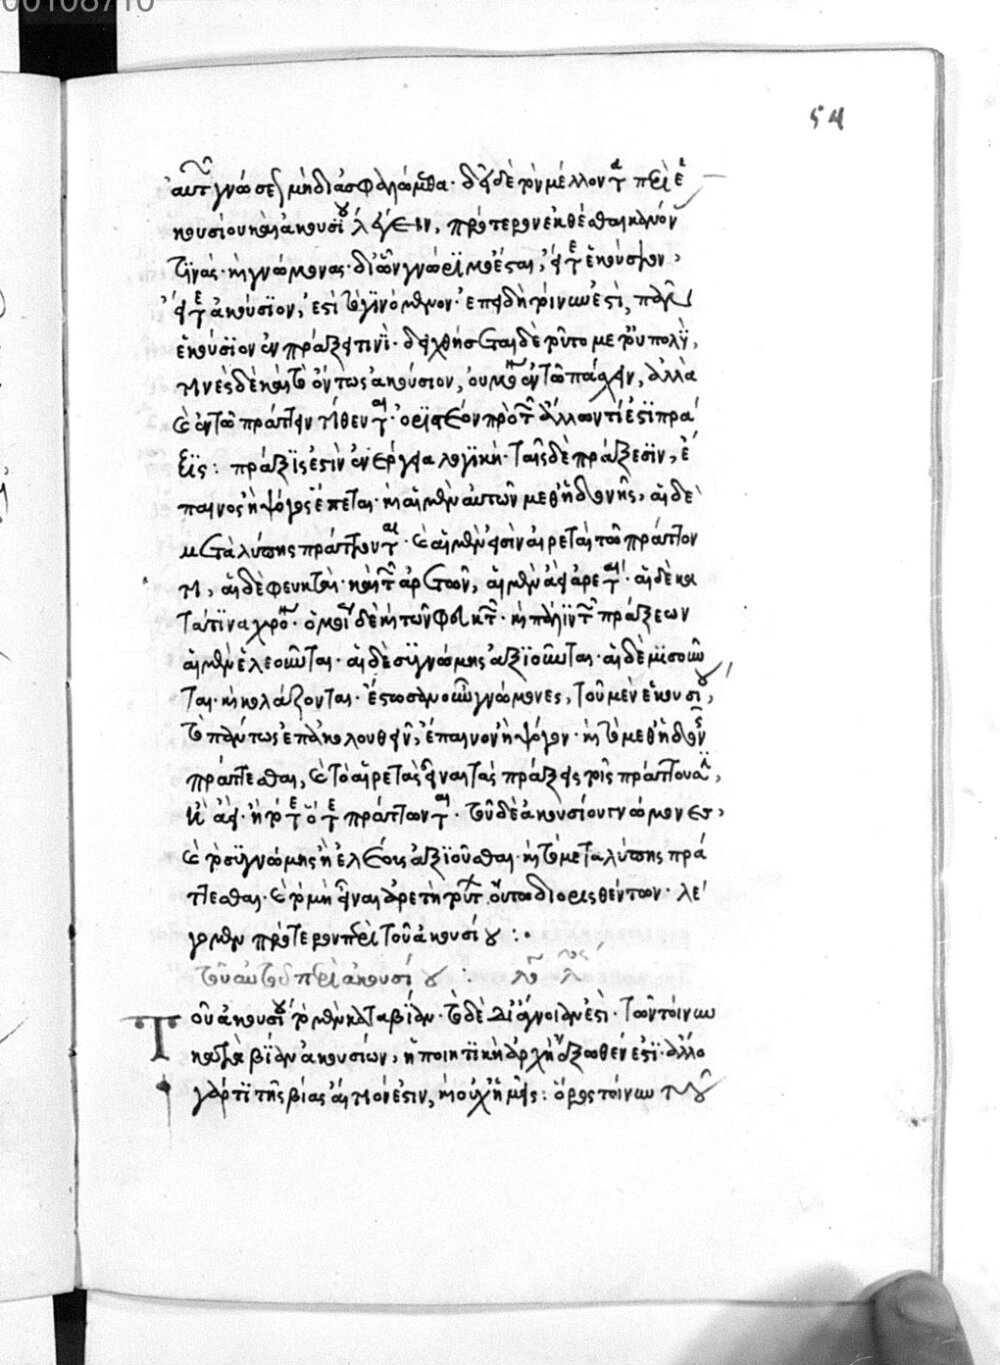 00108710
54
αὐτῶν γνώσεως μὴ διασφαλώμεθα· δεῖ δὲ τὸν μέλλοντα περὶ ἑ
κουσίου καὶ ἀκουσίου λέγειν, πρότερον ἐκθέσθαι κανόν
τινὰς· καὶ γνώμονας· δι' ὧν γνωρισθήσεται, εἴτε ἑκούσιον,
εἴτε ἀκούσιον, ἐστὶ τὸ γινόμενον· ἐπειδὴ τοίνυν ἐστὶ, πᾶν
ἑκούσιον ἐν πράξει τινὶ· δειχθήσεται δὲ τοῦτο μετ' οὐ πολὺ,
τινὲς δὲ καὶ τὸ ὄντως ἀκούσιον, οὐ μόνον ἐν τῶ πάσχειν, ἀλλὰ
καὶ ἐν τῶ πράττειν τίθενται· ὁριστέον πρὸ τῶν ἄλλων τί ἐστι πρᾶ
ξις: πρᾶξις ἐστὶν ἐνέργεια λογική· ταῖς δὲ πράξεσιν, ἔ
παινος ἢ ψόγος ἕπεται· καὶ αἱ μὲν αὐτῶν μεθ' ἡδονῆς, αἱ δὲ
μετὰ λύπης πράττονται· καὶ αἱ μὲν εἰσὶν αἱρεταὶ τῶ πράττον
τι, αἱ δὲ φευκταὶ· καὶ τῶν αἱρετῶν, αἱ μὲν ἀεὶ αἱρεταὶ· αἱ δὲ κα
τά τινα χρόνον· ὁμοίως δὲ καὶ τῶν φευκτῶν· καὶ πάλιν τῶν πράξεων
αἱ μὲν ἐλεοῦνται· αἱ δὲ συγγνώμης ἀξιοῦνται· αἱ δὲ μισοῦν
ται· καὶ κολάζονται· ἔστωσαν οὖν γνώμονες, τοῦ μὲν ἑκουσίου,
τὸ πάντως ἐπακολουθεῖν, ἔπαινον ἢ ψόγον· καὶ τὸ μεθ' ἡδονῆς
πράττεσθαι, καὶ τὸ αἱρετὰς εἶναι τὰς πράξεις τοῖς πράττουσιν,
ἢ ἀεὶ· ἢ τότε ὅτε πράττονται· τοῦ δὲ ἀκουσίου γνώμονες,
καὶ τὸ συγγνώμης ἢ ἐλέους ἀξιοῦσθαι· καὶ τὸ μετὰ λύπης πρά
ττεσθαι· καὶ τὸ μὴ εἶναι αἱρετὴ τούτων οὕτω διορισθέντων· λέ
γωμεν πρότερον περὶ τοῦ ἀκουσίου :·
τοῦ αὐτοῦ περὶ ἀκουσίου :
Τοῦ ἀκουσίου τὸ μὲν κατὰ βίαν· τὸ δὲ δι' ἄγνοιαν ἐστὶ· τῶν τοίνυν
κατὰ βίαν ἀκουσίων, ἡ ποιητικὴ ἀρχὴ ἔξωθεν ἐστὶ· ἄλλο
γάρ τι τῆς βίας αἴτιόν ἐστιν, καὶ οὐχ ἡμεῖς: ὅρος τοίνυν τοῦ